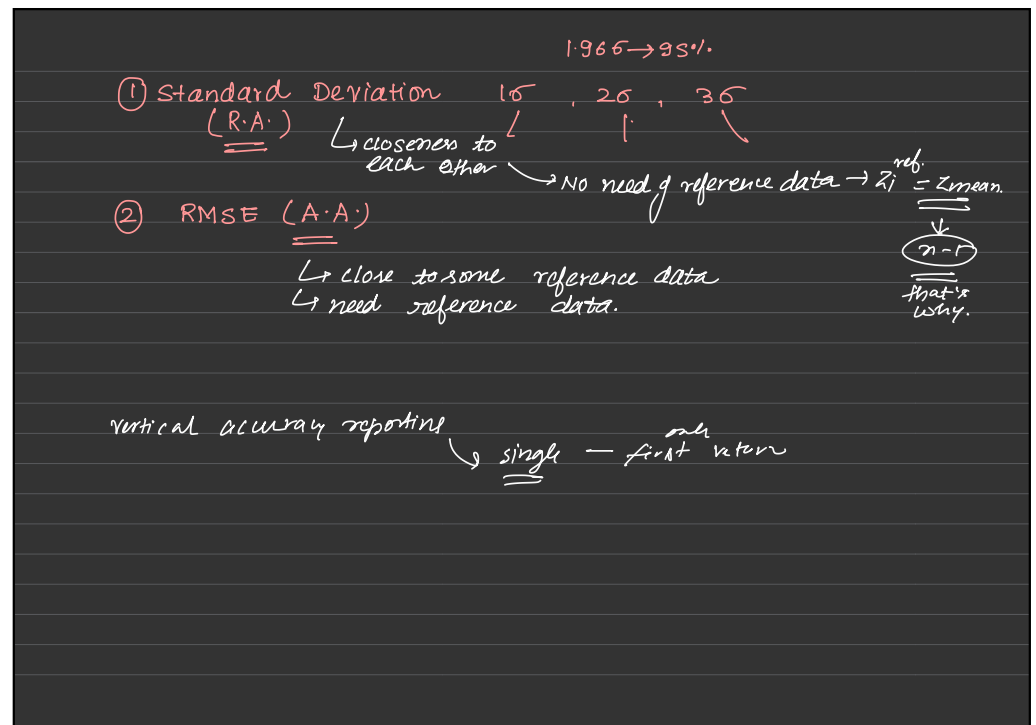 1.96σ → 95%
① Standard Deviation 1σ , 2σ , 3σ
(R.A.)
↳ closeness to
each other
→ No need of reference data → Zi ref. = Zmean.
② RMSE (A.A.)
n-1
that's
why.
↳ close to some reference data
↳ need reference data.
vertical accuracy reporting
↳ single — only first return